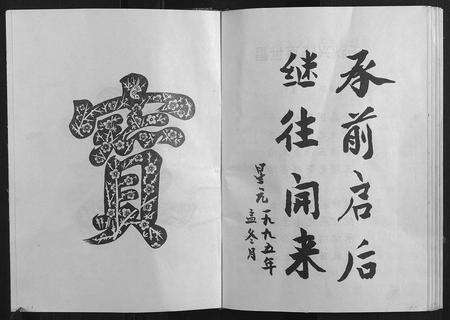 承前启后
继往开来
星元 一九九五年
孟冬月
寶